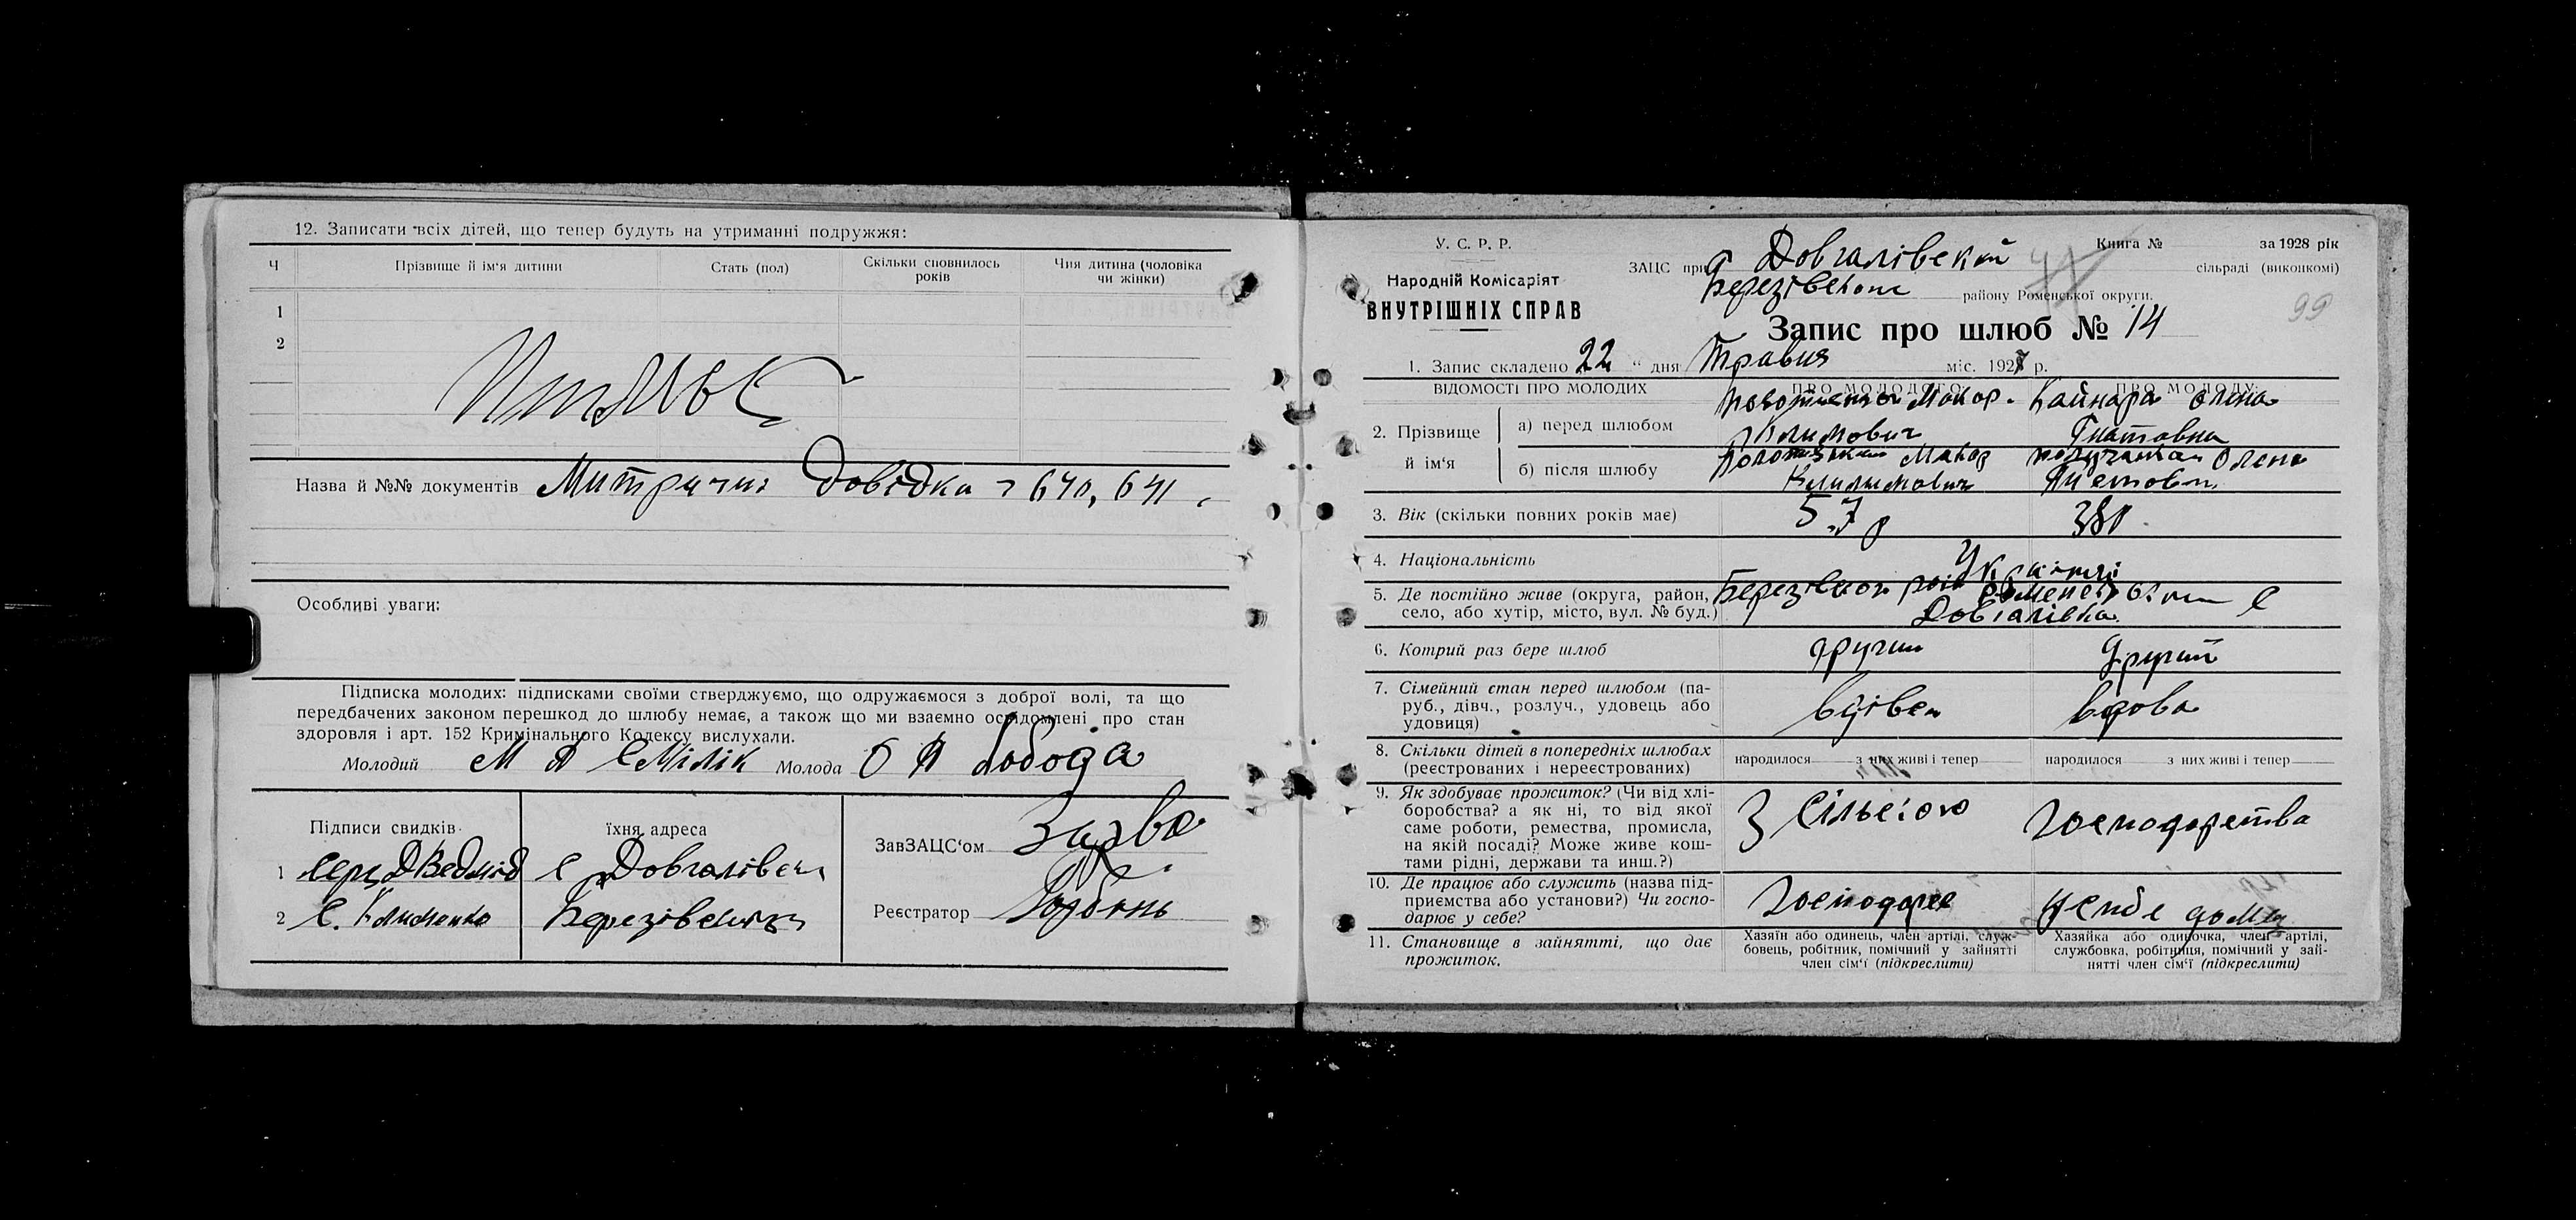 12. Записати всіх дітей, що тепер будуть на утриманні подружжя:
Ч Прізвище й ім'я дитини Стать (пол) Скільки сповнилось років Чия дитина (чоловіка чи жінки)
1
2
Назва й №№ документів Довідка 640, 641
Особливі уваги:
Підписка молодих: підписками своїми стверджуємо, що одружаємося з доброї волі, та що
передбачених законом перешкод до шлюбу немає, а також що ми взаємно освідомлені про стан
здоров'я і арт. 152 Кримінального Кодексу вислухали.
Молодий Молода О Лобода
Підписи свидків їхня адреса
ЗавЗАЦС'ом
1 с Довгалівка
2 С. Клименко
Реєстратор
У. С. Р. Р.
Народній Комісаріят
ВНУТРІШНІХ СПРАВ
Книга № за 1928 рік
ЗАЦС при Довгалівській сільраді (виконкомі)
Березівського району Роменської округи.
99
Запис про шлюб № 14
1. Запис складено 22 " дня Травня міс. 1928 р.
ВІДОМОСТІ ПРО МОЛОДИХ ПРО МОЛОДОГО ПРО МОЛОДУ
2. Прізвище й ім'я
а) перед шлюбом Макар Климович Кайнара Олена Гнатовна
б) після шлюбу Макар Климович Олена
3. Вік (скільки повних років має) 57 р 38 р
4. Національність Українці
5. Де постійно живе (округа, район,
село, або хутір, місто, вул. № буд.) Довгалівка
6. Котрий раз бере шлюб другий другий
7. Сімейний стан перед шлюбом (па-
руб., дівч., розлуч., удовець або
удовиця) вдівец вдова
8. Скільки дітей в попередніх шлюбах
(реєстрованих і нереєстрованих)
народилося з них живі і тепер народилося з них живі і тепер
9. Як здобуває прожиток? (Чи від хлі-
боробства? а як ні, то від якої
саме роботи, ремества, промисла,
на якій посаді? Може живе кош-
тами рідні, держави та инш.?)
З сільского господарства
10. Де працює або служить (назва під-
приємства або установи?) Чи госпо-
дарює у себе?
господарює
11. Становище в зайнятті, що дає
прожиток.
Хазяїн або одинець, член артілі, служ-
бовець, робітник, помічний у зайнятті
член сім'ї (підкреслити)
Хазяйка або одиночка, член артілі,
службовка, робітниця, помічний у зай-
нятті член сім'ї (підкреслити)